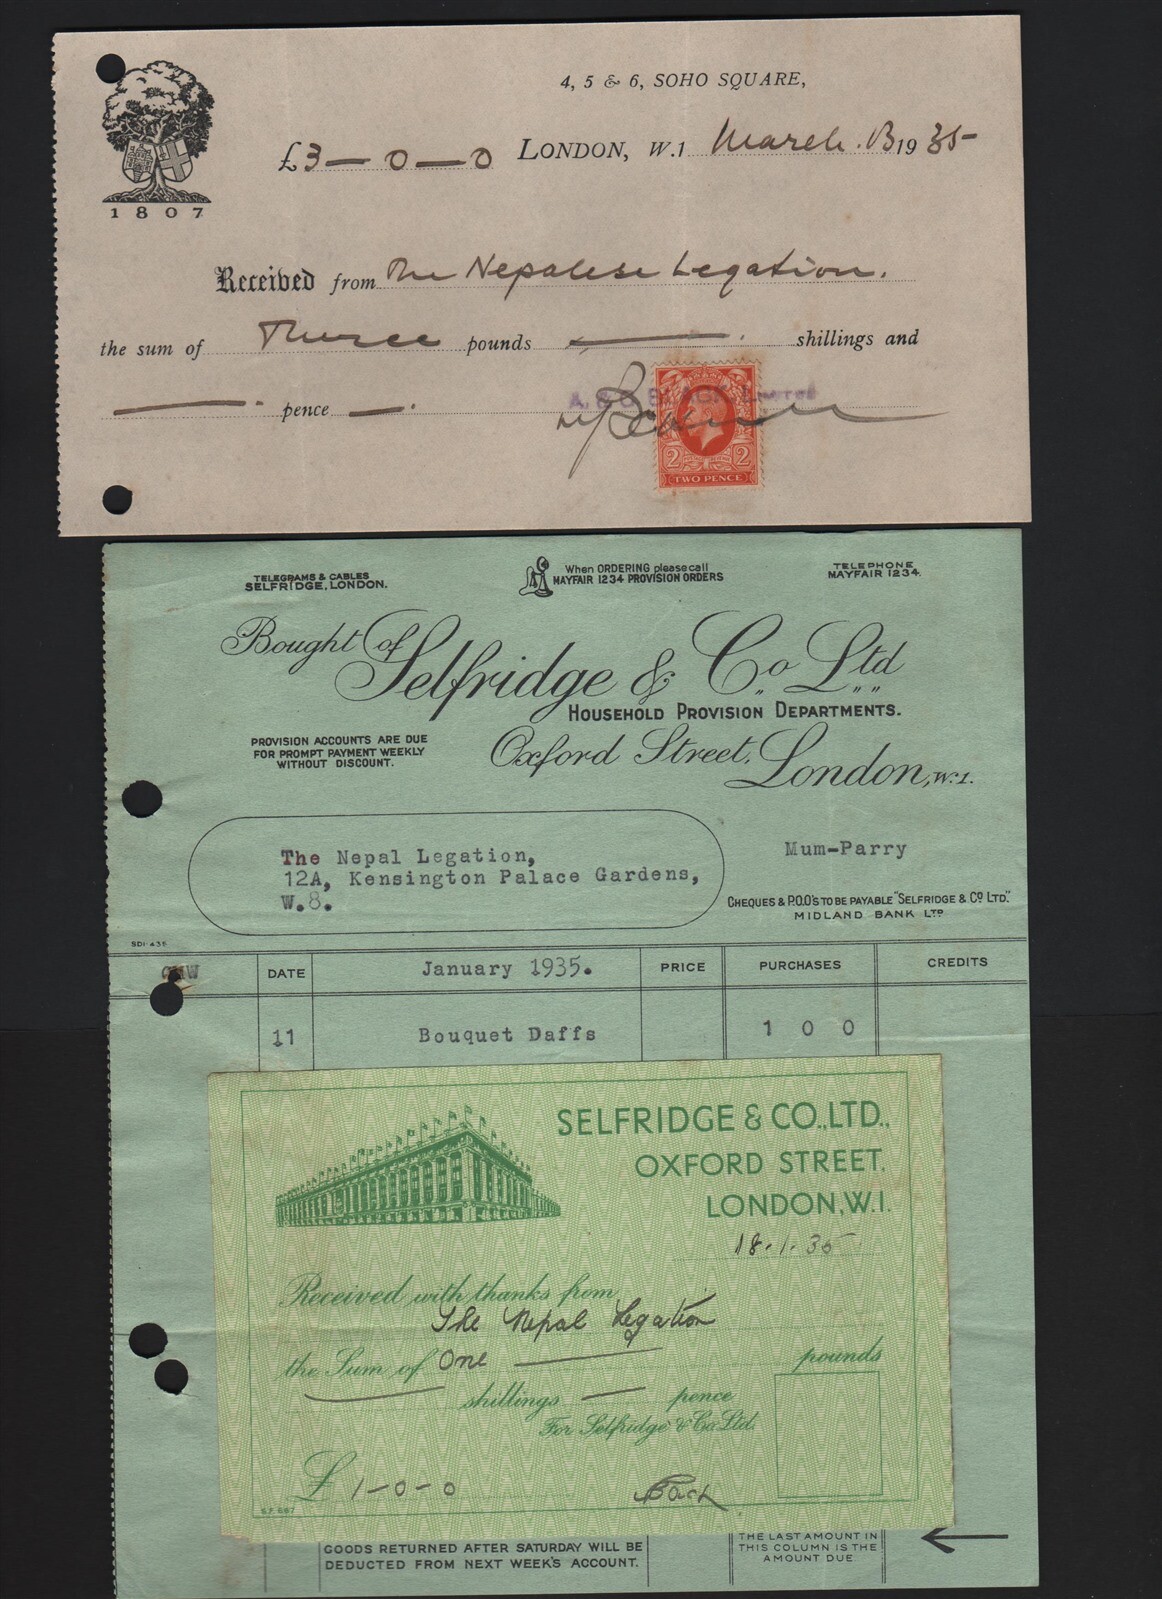 4, 5 & 6, SOHO SQUARE,
£3—0—0 LONDON, W.1 March. 13 1935-
1807
Received from The Nepalese Legation.
the sum of Three pounds —. shillings and
—. pence —.
A. & C. Black Limited
2 2
TWO PENCE
TELEGRAMS & CABLES
SELFRIDGE, LONDON.
When ORDERING please call
MAYFAIR 1234 PROVISION ORDERS
TELEPHONE
MAYFAIR 1234.
Bought of Selfridge & Co., Ltd
HOUSEHOLD PROVISION DEPARTMENTS.
PROVISION ACCOUNTS ARE DUE
FOR PROMPT PAYMENT WEEKLY
WITHOUT DISCOUNT.
Oxford Street, London, W.1.
The Nepal Legation,
12A, Kensington Palace Gardens,
W.8.
Mum-Parry
CHEQUES & P.O.O's TO BE PAYABLE "SELFRIDGE & Co LTD."
MIDLAND BANK LTD
SDI 435
DATE January 1935. PRICE PURCHASES CREDITS
11 Bouquet Daffs 1 0 0
SELFRIDGE & CO., LTD.,
OXFORD STREET,
LONDON, W.1.
18.1.35
Received with thanks from
The Nepal Legation
the Sum of One — pounds
— shillings — pence
For Selfridge & Co. Ltd.
£ 1-0-0
S.F. 667
GOODS RETURNED AFTER SATURDAY WILL BE
DEDUCTED FROM NEXT WEEK'S ACCOUNT.
THE LAST AMOUNT IN
THIS COLUMN IS THE
AMOUNT DUE